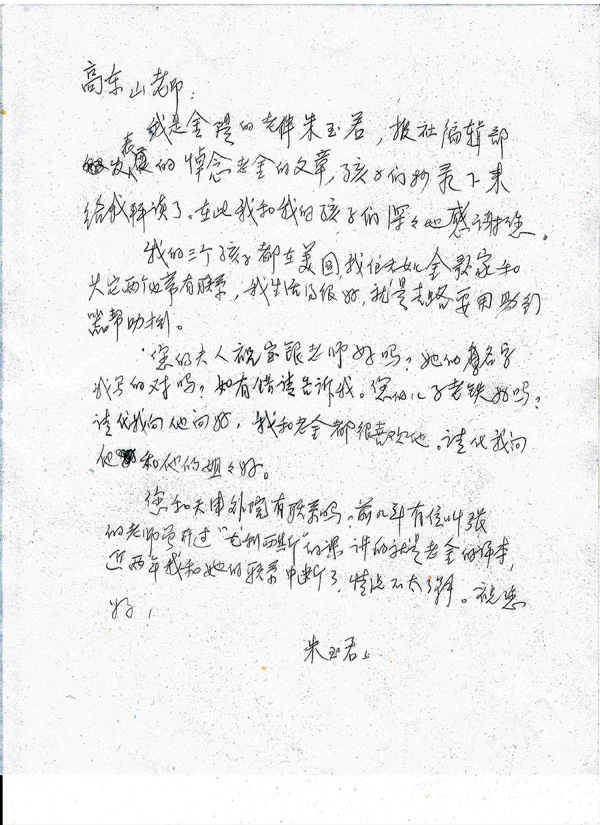 高东山老师:
我是金隄的老伴朱玉若,报社编辑部
发表的悼念老金的文章,孩子们抄录下来
给我解读了。在此我和我的孩子们深々地感谢您。
我的三个孩子都在美国我住女儿金歌家和
大定两个常有联系,我生活得很好,就是走路要用助行
器帮助挡。
您的夫人祝宝银老师好吗?她的名字
我写的对吗?如有错请告诉我。您的儿子老铁好吗?
请代我向他问好,我和老金都很喜欢他。请代我问
他和他的姐々好。
您和天津外院有联系吗,前几年有位叫张
的老师曾开过“尤利西斯”的课讲的就是老金的译本,
近两年我和她的联系中断了,情况不太了解。祝您
好,
朱玉若上